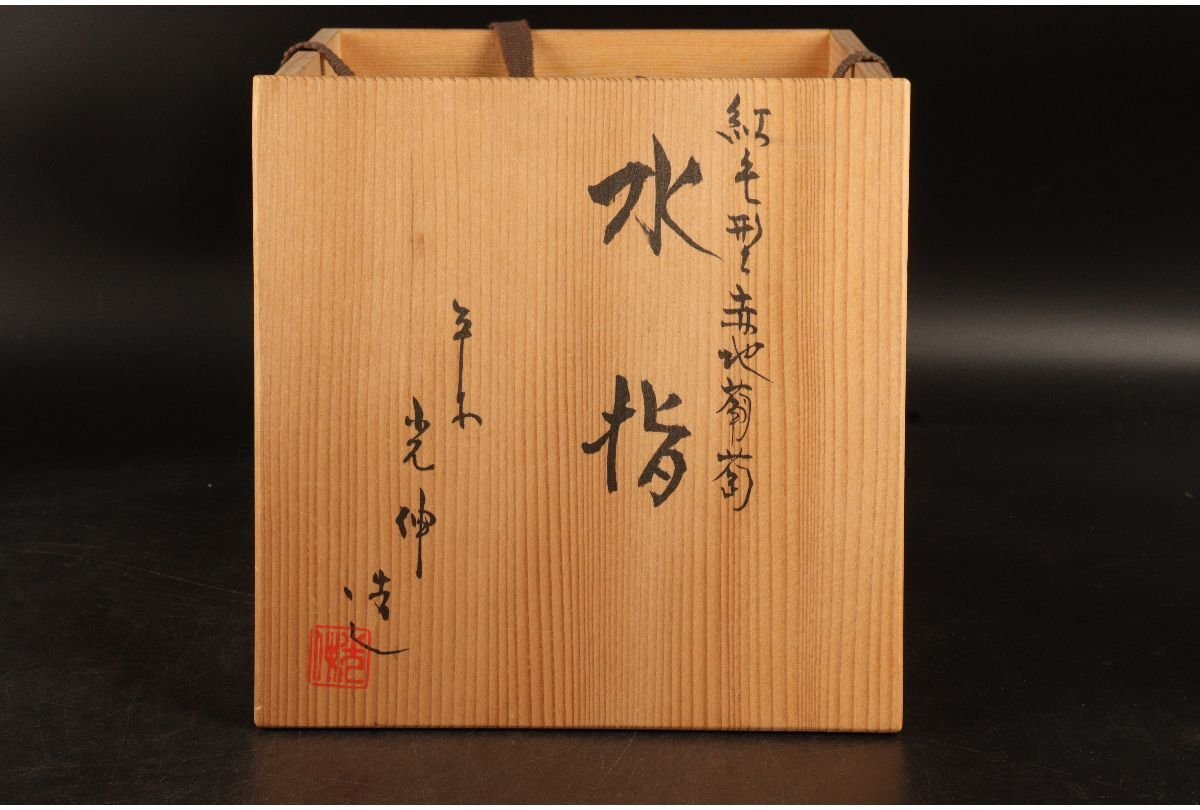 紅毛型赤地葡萄
水指
平安
光伸
造